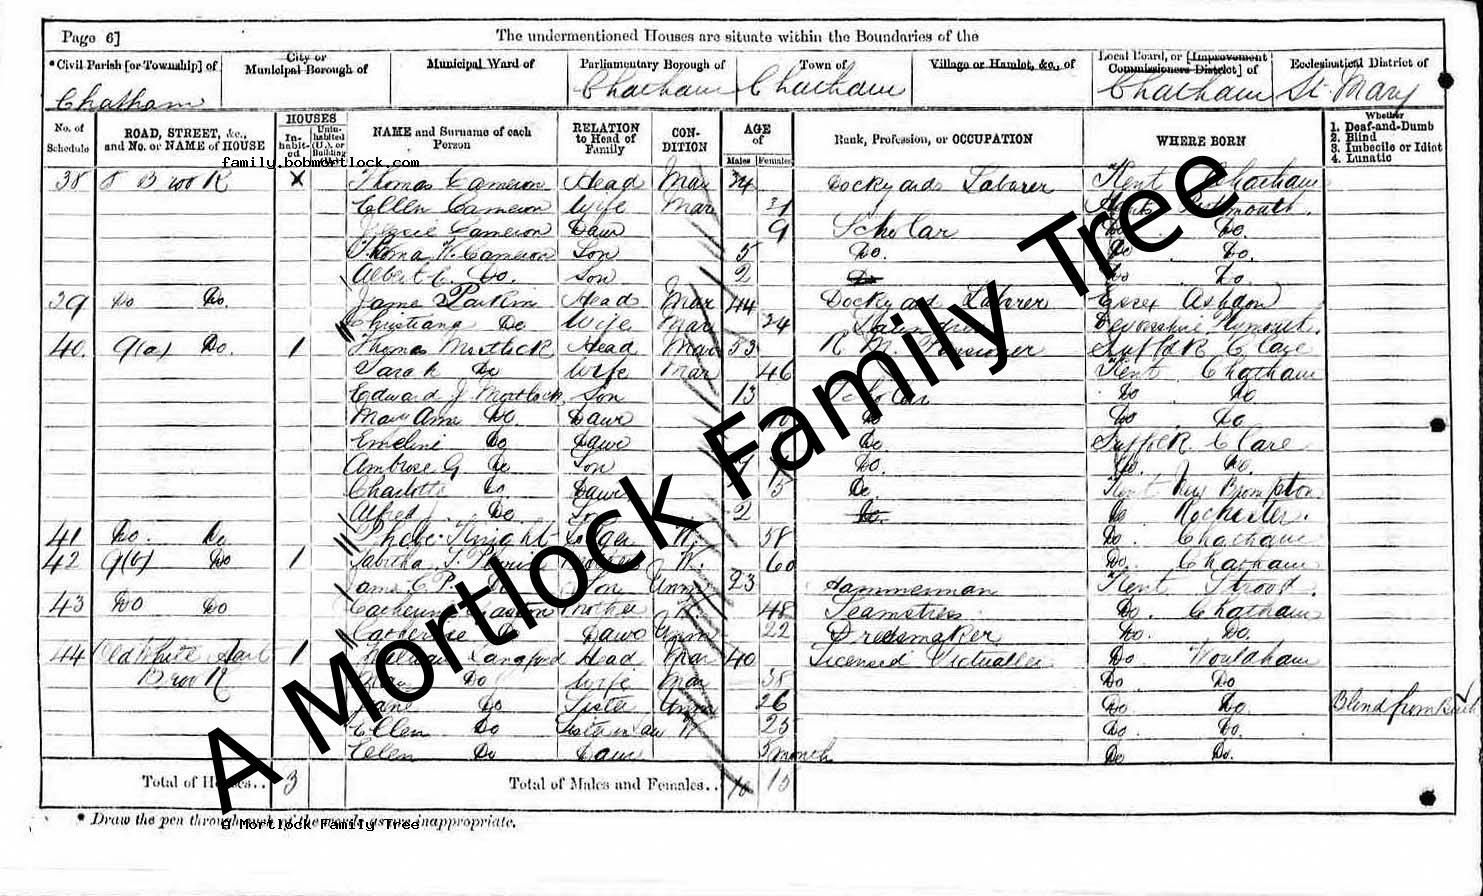 Page 6] The undermentioned Houses are situate within the Boundaries of the
*Civil Parish [or Township] of City or Municipal Borough of Municipal Ward of Parliamentary Borough of Town of Village or Hamlet, &c., of Local Board, or [Improvement Commissioners District] of Ecclesiastical District of
Chatham Chatham Chatham Chatham St. Mary
No. of Schedule ROAD, STREET, &c., and No. or NAME of HOUSE HOUSES Inhabited Uninhabited (U.), or Building NAME and Surname of each Person RELATION to Head of Family CONDITION AGE of Males Females Rank, Profession, or OCCUPATION WHERE BORN Whether 1. Deaf-and-Dumb 2. Blind 3. Imbecile or Idiot 4. Lunatic
family.bobmortlock.com
38 8 Brook X Thomas Cameron Head Mar 34 Dockyard Laborer Kent Chatham
Ellen Cameron Wife Mar 31 Portsmouth.
Cameron Daur 9 Scholar Do Do.
Thomas W. Cameron Son 5 Do. Do Do.
Albert C. Do. Son 2 Do Do Do.
39 Do Do. James Parkin Head Mar 44 Dockyard Laborer Essex Ashdon
Christiana Do Wife Mar 34 Devonshire Plymouth.
40 9(a) Do. 1 Thomas Mortlock Head Mar 53 R. M. Pensioner Suffolk Clare
Sarah Do Wife Mar 46 Kent Chatham
Edward J. Mortlock Son 13 Scholar Do Do
Mary Ann Do. Daur 10 Do Do Do.
Emeline Do Daur Do. Suffolk Clare
Ambrose G. Do Son 7 Do. Do. Do.
Charlotte Do. Daur 5 Do Kent New Brompton
Alfred Do. Son 2 Do. Do Rochester.
41 Do. Do Phebe Knight W. 58 Do. Chatham
42 9(b) Do 1 Tabitha W. 60 Do. Chatham
James C. Son Unm 23 Hammerman Kent Strood.
43 Do Do Catherine W 48 Seamstress Do. Chatham
Catherine Do Daur Unm 22 Dressmaker Do. Do.
44 Old White Hart 1 William Langford Head Mar 40 Licensed Victualler Do. Wouldham
Brook Do Wife Mar 38 Do Do
Jane Do Sister Unm 26 Do. Do. Blind from Birth
Ellen Do Sister in Law 25 Do. Do.
Elen Do Daur 5 month Do Do.
Total of Houses.. 3 Total of Males and Females.. 10 15
* Draw the pen through such of the words as are inappropriate.
A Mortlock Family Tree
A Mortlock Family Tree